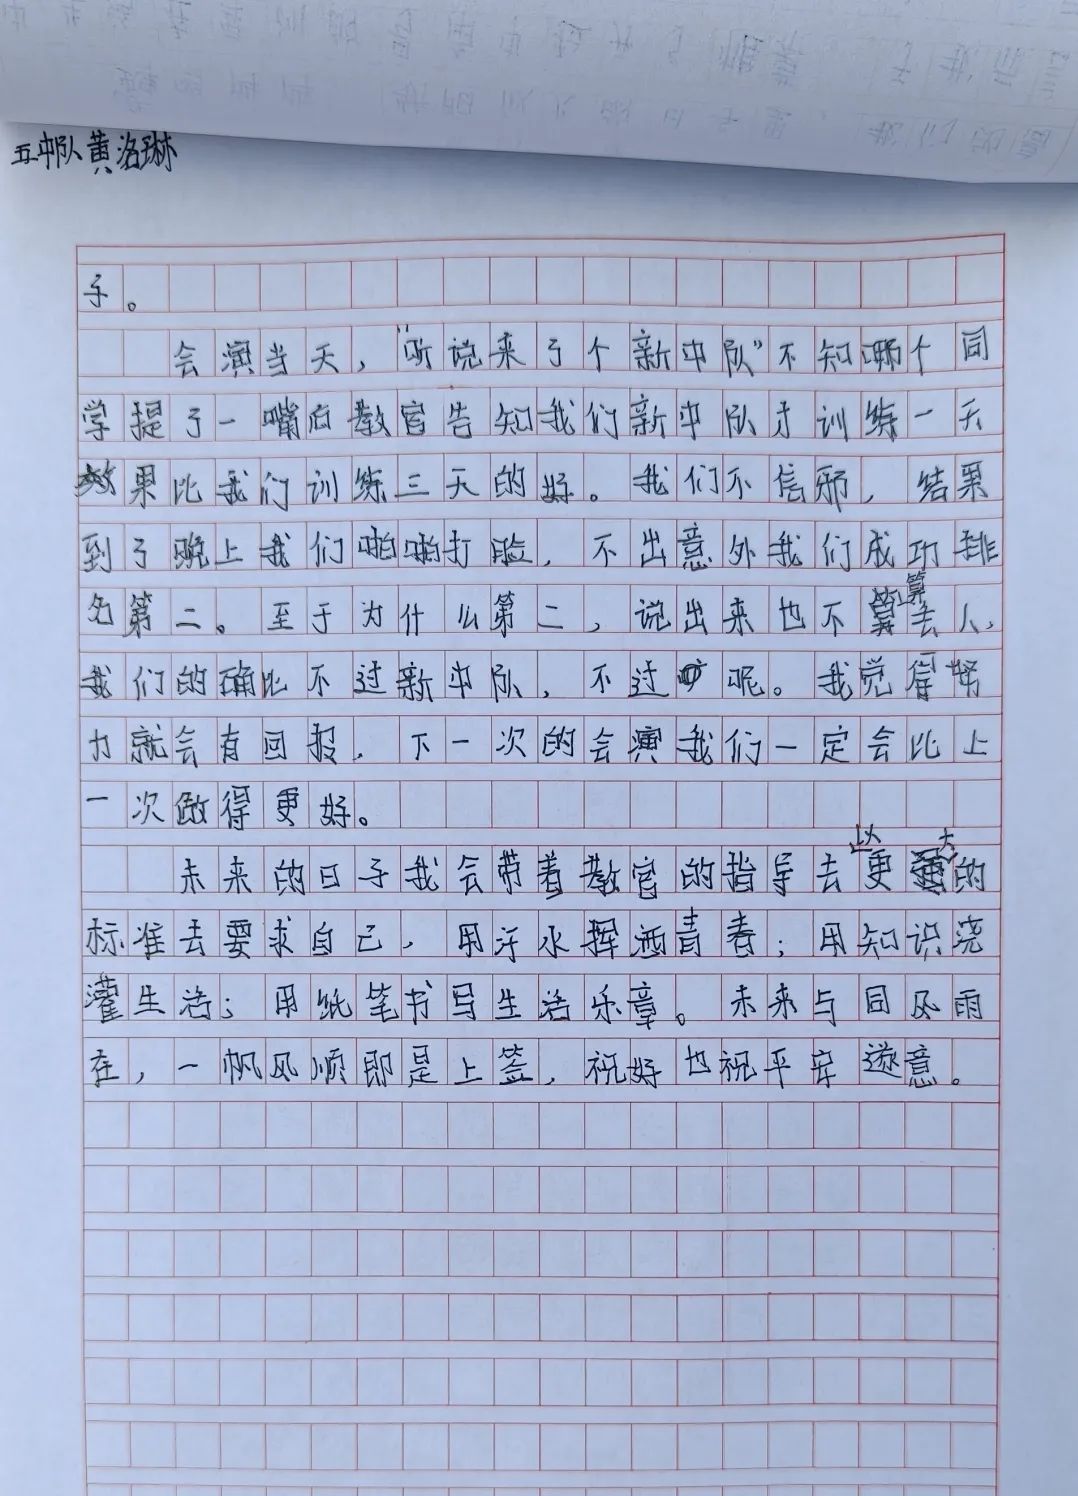 五中队黄洛琳
子。
会演当天，“听说来了个新中队”不知哪个同
学提了一嘴后教官告知我们新中队才训练一天
效果比我们训练三天的好。我们不信邪，结果
到了晚上我们啪啪打脸，不出意外我们成功排
名第二。至于为什么第二，说出来也不算丢人，
我们的确比不过新中队，不过呢。我觉得努
力就会有回报，下一次的会演我们一定会比上
一次做得更好。
未来的日子我会带着教官的指导去以更大的
标准去要求自己，用汗水挥洒青春；用知识浇
灌生活；用纸笔书写生活乐章。未来与同风雨
在，一帆风顺即是上签，祝好也祝平安遂意。